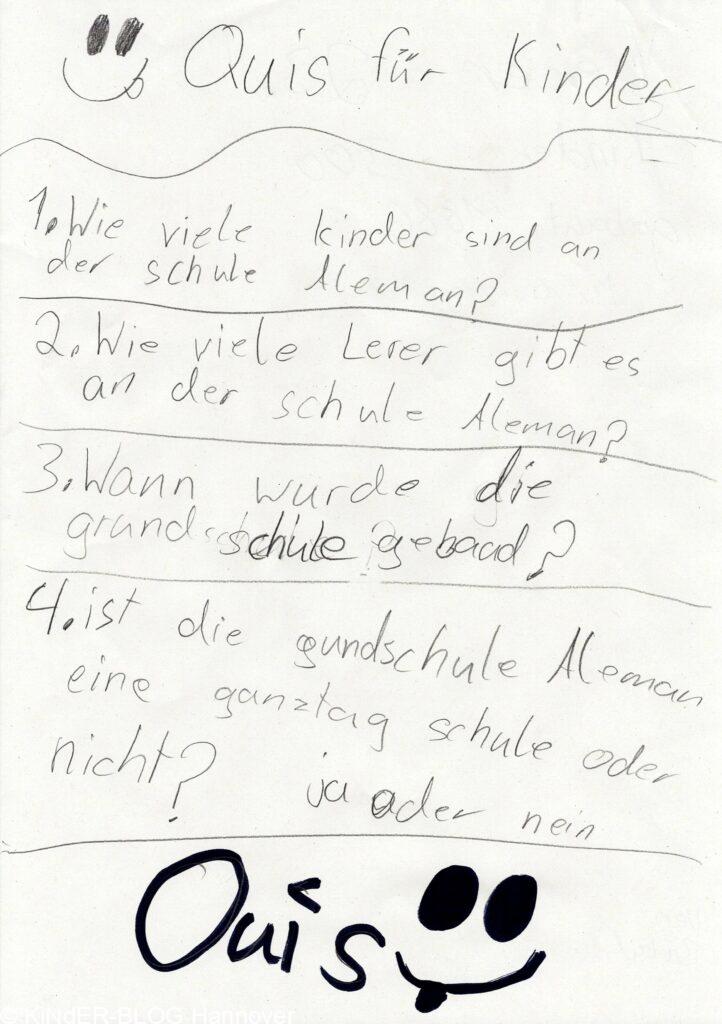 Quis für Kinder
1. Wie viele kinder sind an
der schule Aleman?
2. Wie viele Lerer gibt es
an der schule Aleman?
3. Wann wurde die
grundschule gebaad?
4. ist die gundschule Aleman
eine ganztag schule oder
nicht? ja oder nein
Quis
© KindER-BLOG Hannover